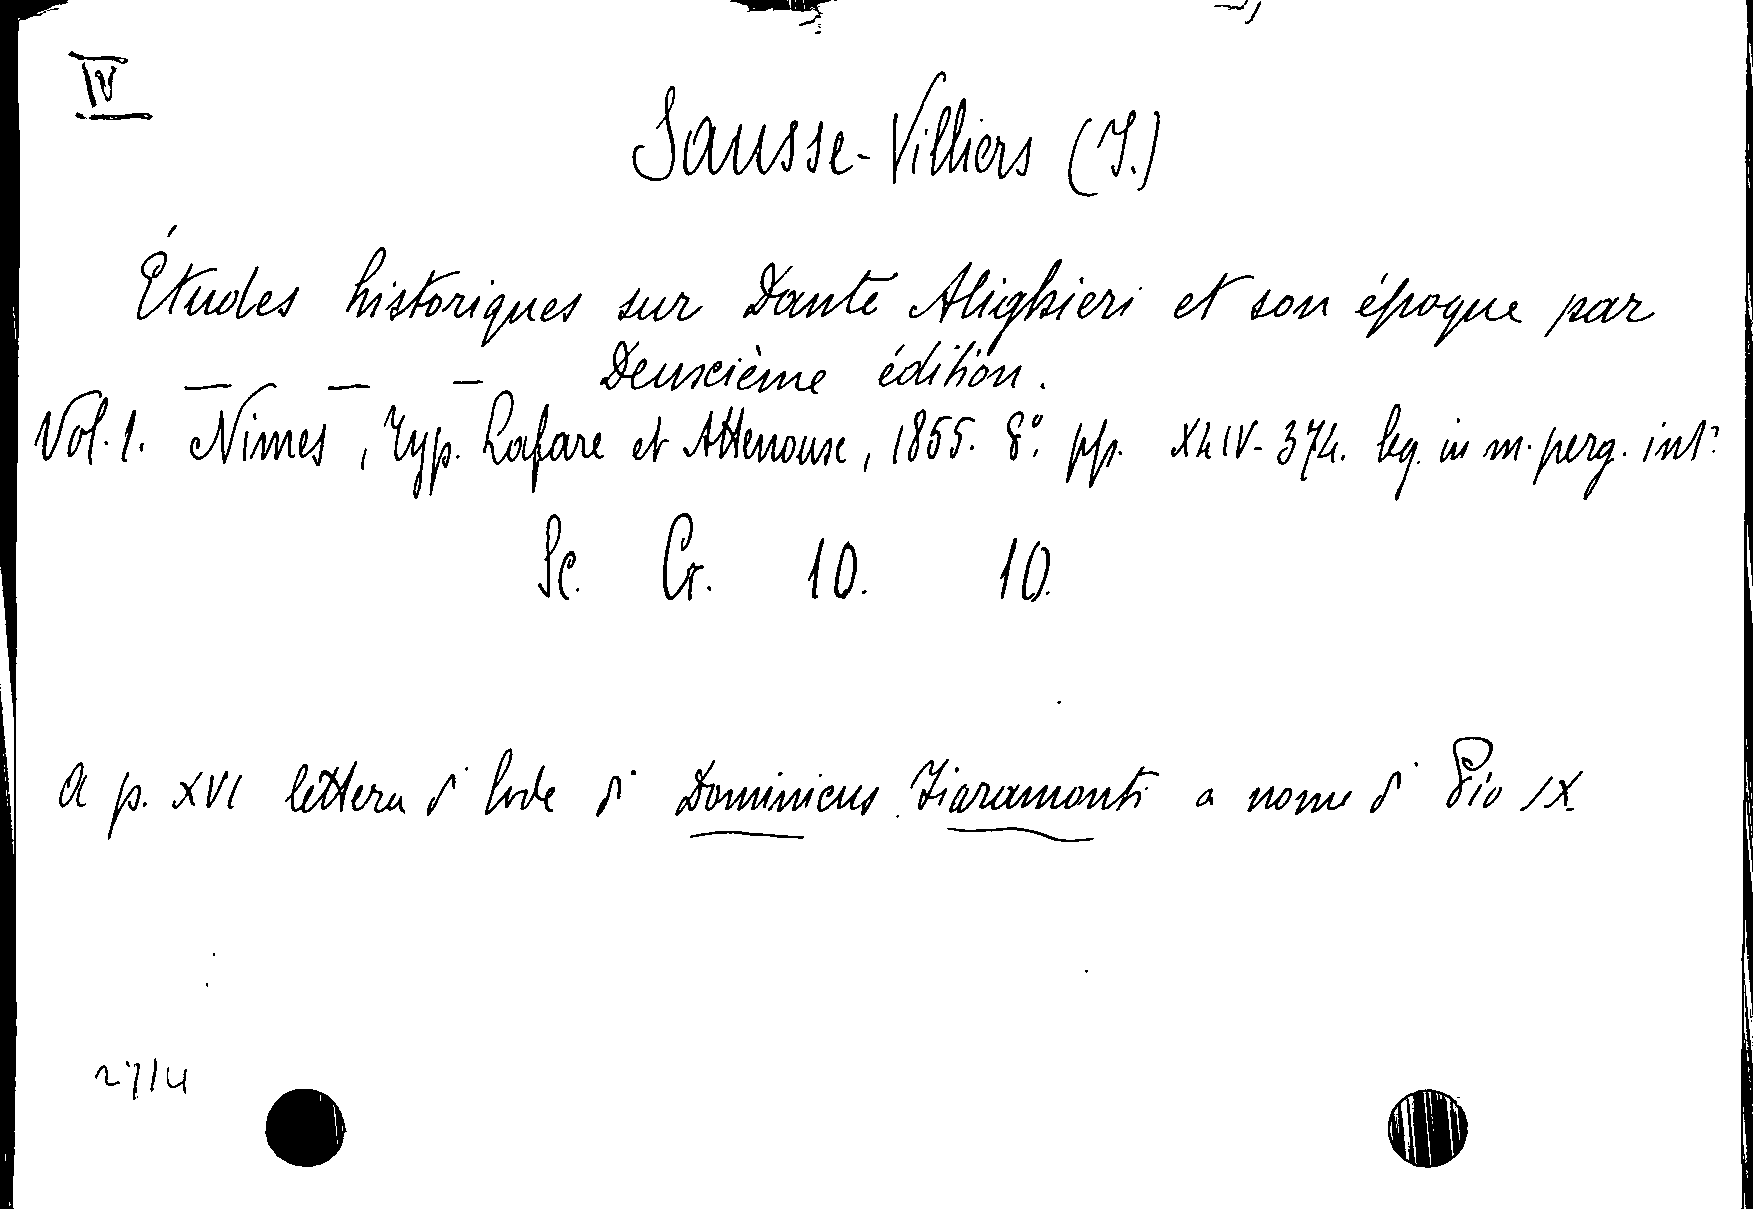 IV
Sausse-Villiers (J.)
Études historiques sur Dante Alighieri et son époque par
— — — Deuxième édition.
Vol. 1. Nimes, Typ. Lafare et Attenoux, 1855. 8º. pp. XLIV-374. leg. in m. perg. int?
Sc. Cr. 10. 10.
A p. XVI lettera di lode di Dominicus Fiaramonti a nome di Pio IX
2714